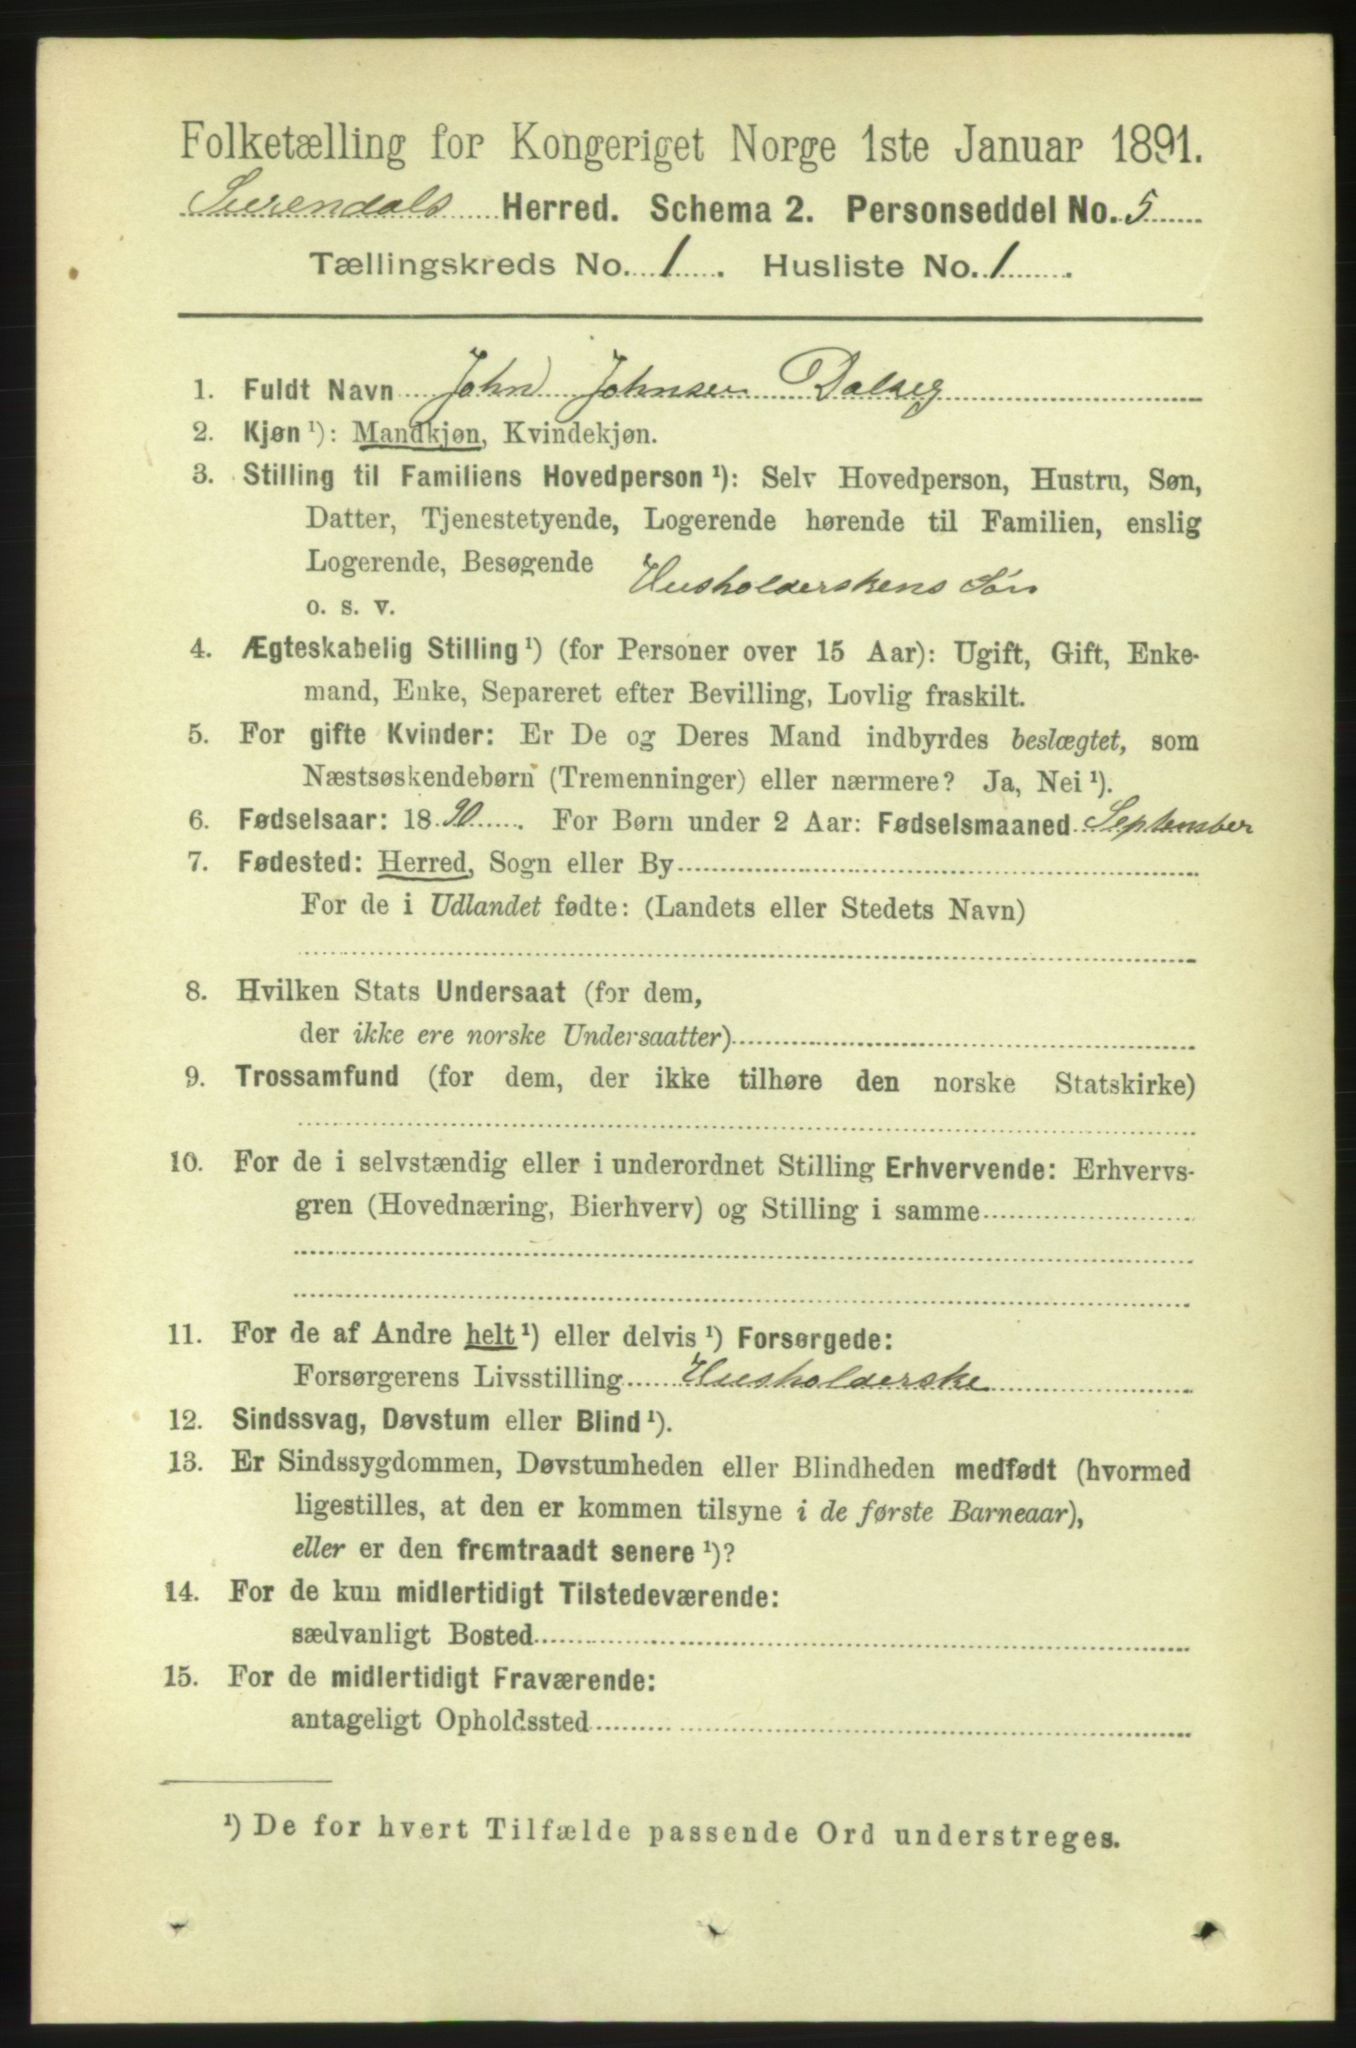 Folketælling for Kongeriget Norge 1ste Januar 1891.
Surendals Herred. Schema 2. Personseddel No. 5
Tællingskreds No. 1. Husliste No. 1.
1. Fuldt Navn John Johnsen Dalseg
2. Kjøn ¹): Mandkjøn, Kvindekjøn.
3. Stilling til Familiens Hovedperson ¹): Selv Hovedperson, Hustru, Søn,
Datter, Tjenestetyende, Logerende hørende til Familien, enslig
Logerende, Besøgende Husholderskens Søn
o. s. v.
4. Ægteskabelig Stilling ¹) (for Personer over 15 Aar): Ugift, Gift, Enke-
mand, Enke, Separeret efter Bevilling, Lovlig fraskilt.
5. For gifte Kvinder: Er De og Deres Mand indbyrdes beslægtet, som
Næstsøskendebørn (Tremenninger) eller nærmere? Ja, Nei ¹).
6. Fødselsaar: 1890. For Børn under 2 Aar: Fødselsmaaned September
7. Fødested: Herred, Sogn eller By
For de i Udlandet fødte: (Landets eller Stedets Navn)
8. Hvilken Stats Undersaat (for dem,
der ikke ere norske Undersaatter)
9. Trossamfund (for dem, der ikke tilhøre den norske Statskirke)
10. For de i selvstændig eller i underordnet Stilling Erhvervende: Erhvervs-
gren (Hovednæring, Bierhverv) og Stilling i samme
11. For de af Andre helt ¹) eller delvis ¹) Forsørgede:
Forsørgerens Livsstilling Husholderske
12. Sindssvag, Døvstum eller Blind ¹).
13. Er Sindssygdommen, Døvstumheden eller Blindheden medfødt (hvormed
ligestilles, at den er kommen tilsyne i de første Barneaar),
eller er den fremtraadt senere ¹)?
14. For de kun midlertidigt Tilstedeværende:
sædvanligt Bosted
15. For de midlertidigt Fraværende:
antageligt Opholdssted
¹) De for hvert Tilfælde passende Ord understreges.